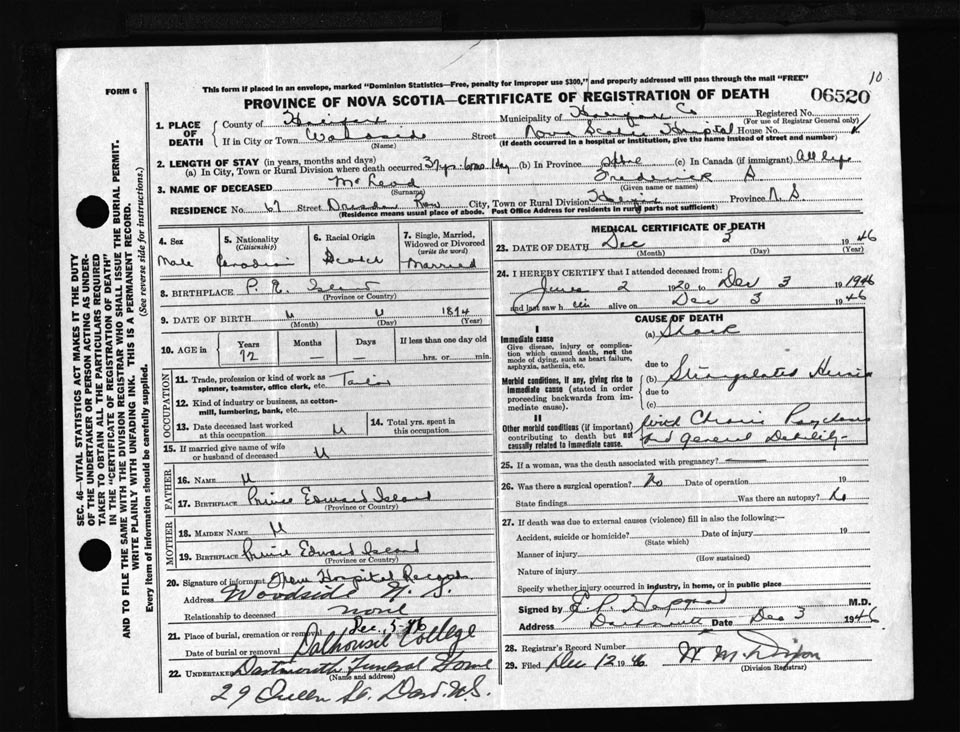 10
FORM 6
This form if placed in an envelope, marked "Dominion Statistics—Free, penalty for improper use $300," and properly addressed will pass through the mail "FREE"
PROVINCE OF NOVA SCOTIA—CERTIFICATE OF REGISTRATION OF DEATH
06520
1. PLACE OF DEATH
County of Halifax
Municipality of Halifax Co
Registered No.
(For use of Registrar General only)
If in City or Town Woodside Street Nova Scotia Hospital House No.
(Name)
(If death occurred in a hospital or institution, give the name instead of street and number)
2. LENGTH OF STAY (in years, months and days)
(a) In City, Town or Rural Division where death occurred 3 yrs. 6 mos 1 day (b) In Province (c) In Canada (if immigrant) All life
3. NAME OF DECEASED McLeod Frederick A.
(Surname) (Given name or names)
RESIDENCE No. 67 Street Dresden Row City, Town or Rural Division Halifax Province N. S.
(Residence means usual place of abode. Post Office Address for residents in rural parts not sufficient)
4. Sex
Male
5. Nationality
(Citizenship)
Canadian
6. Racial Origin
Scotch
7. Single, Married, Widowed or Divorced
(write the word)
Married
8. BIRTHPLACE P. E. Island
(Province or Country)
9. DATE OF BIRTH u u 1874
(Month) (Day) (Year)
10. AGE in Years Months Days If less than one day old
72 — — hrs. or min.
OCCUPATION
11. Trade, profession or kind of work as spinner, teamster, office clerk, etc. Tailor
12. Kind of industry or business, as cotton-mill, lumbering, bank, etc.
13. Date deceased last worked at this occupation u
14. Total yrs. spent in this occupation
15. If married give name of wife or husband of deceased u
FATHER
16. NAME u
17. BIRTHPLACE Prince Edward Island
(Province or Country)
MOTHER
18. MAIDEN NAME u
19. BIRTHPLACE Prince Edward Island
(Province or Country)
20. Signature of informant Hospital Records
Address Woodside N. S.
Relationship to deceased none
21. Place of burial, cremation or removal Dalhousie College
Date of burial or removal Dec. 5-46
22. UNDERTAKER Dartmouth Funeral Home
(Name and address)
29 Queen St. Dart. N.S.
MEDICAL CERTIFICATE OF DEATH
23. DATE OF DEATH Dec 3 1946
(Month) (Day) (Year)
24. I HEREBY CERTIFY that I attended deceased from:
June 2 1920 to Dec 3 19 1946
and last saw h im alive on Dec 3 1946
CAUSE OF DEATH
I
Immediate cause
Give disease, injury or complication which caused death, not the mode of dying, such as heart failure, asphyxia, asthenia, etc.
(a) Shock
due to
Morbid conditions, if any, giving rise to immediate cause (stated in order proceeding backwards from immediate cause).
(b) Strangulated Hernia
due to
(c)
II
Other morbid conditions (if important) contributing to death but not causally related to immediate cause.
with Chronic
and general Debility
25. If a woman, was the death associated with pregnancy? —
26. Was there a surgical operation? No Date of operation 19
State findings Was there an autopsy? No
27. If death was due to external causes (violence) fill in also the following:—
Accident, suicide or homicide? Date of injury 19
(State which)
Manner of injury
(How sustained)
Nature of injury
Specify whether injury occurred in industry, in home, or in public place
Signed by M.D.
Address Dartmouth Date Dec 3 1946
28. Registrar's Record Number
29. Filed Dec 12 1946
(Division Registrar)
SEC. 46—VITAL STATISTICS ACT MAKES IT THE DUTY OF THE UNDERTAKER OR PERSON ACTING AS UNDERTAKER TO OBTAIN ALL THE PARTICULARS REQUIRED IN THE "CERTIFICATE OF REGISTRATION OF DEATH" AND TO FILE THE SAME WITH THE DIVISION REGISTRAR WHO SHALL ISSUE THE BURIAL PERMIT.
WRITE PLAINLY WITH UNFADING INK. THIS IS A PERMANENT RECORD.
Every item of information should be carefully supplied. (See reverse side for instructions.)